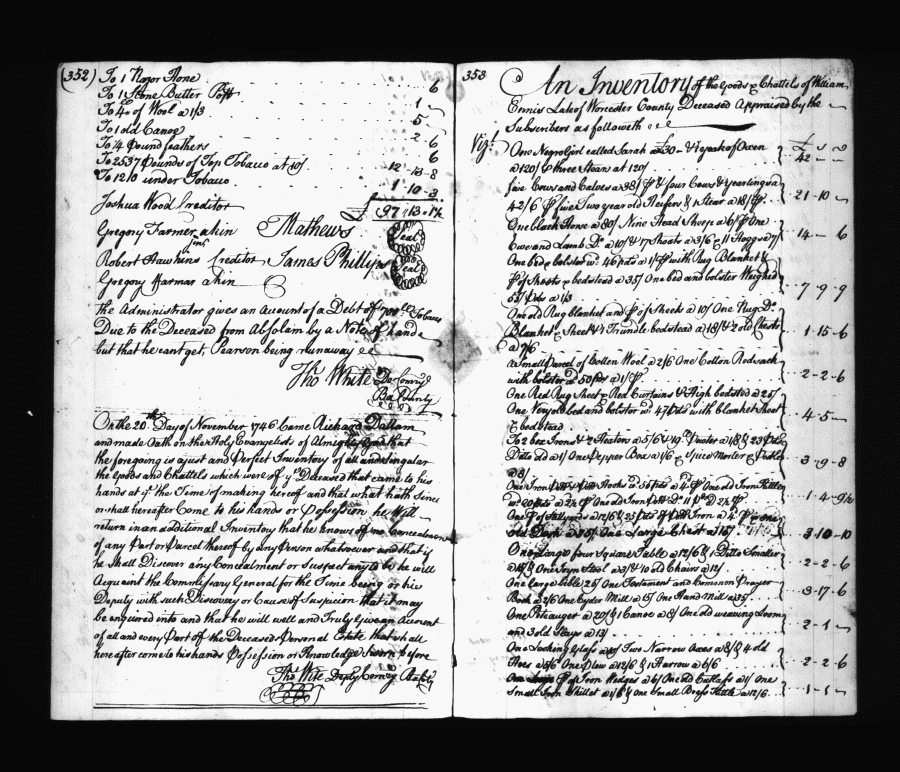 (352)
To 1 Razor Hone 6
To 1 Stone Butter Pott 1 ~
To 4lb of Wool a 1/3 5 ~
To 1 old Canoe 2 - 6
To 14 Pound feathers 6
To 2537 Pounds of Top Tobacco at 10/ 12 - 13 - 8
To 1210 under Tobacco 1 - 10 - 3
Joshua Wood Creditor £ 97 - 13 -
Gregory Farmer a kin Mathews Seal
Robert Hawkins Creditor James Phillips Seal
Gregory Farmar a kin
the Administrator gives an Account of a Debt of 700 lb Tobacco
Due to the Deceased from Absolam by a Note of hand
but that he cant get, Pearson being runaway
Tho White Dp Comry
Ba County
On the 20th Day of November 1746 Came Richard Dallam
and made Oath on the Holy Evangelists of Almighty God that
the foregoing is a just and Perfect Inventory of all and singular
the Goods and Chattels which were of ye Deceased that came to his
hands at ye the Time of making hereof and that what hath Since
or shall hereafter Come to his hands or Possession he will
return in an additional Inventory that he knows of no Concealment
of any Part or Parcel thereof by any Person whatsoever and that if
he shall Discover any Concealment or Suspect any to be he will
Acquaint the Commissary General for the Time being or his
Deputy with such Discovery or Cause of Suspicion that it may
be enquired into and that he will well and Truly Give an Account
of all and every Part of the Deceased Personal Estate that shall
hereafter come to his hands Possession or Knowledge Sworn before
Tho. Wite Depty Comry
353
An Inventory of the Goods & Chattels of William
Ennis Late of Worcester County Deceased Appraised by the
Subscribers as followeth
Viz.t £ s d
One Negro Girl called Sarah a £30 ~ & 1 Yoak of Oxen
a 120/ & three Steers at 120/ 42 - -
five Cows and Calves a 38/ & four Cows & Yearlings a
42/6 five Two year old Heifers & 1 Steer a 18/ 21 - 10 ~
One black Horse a 80/ Nine Head Sheep a 6/ One
Ewe and Lamb Do. a 10/ & 7 Shoats a 3/6 & 11 Hoggs a 7/ 14 ~ 6
One bed & bolster wt. 46 pds a 1/ with Rug Blanket &
of Sheets & bedstead a 35/ One bed and bolster Weighed
pds a 1/3 7 - 9 - 9
One old Rug blanket and of Sheets a 10/ One Rug Do.
Blanket & Sheet & 1 Trundle bedstead a 18/ & 2 old Chests 1 - 15 - 6
a 7/6
a Small Parcel of Cotten Wool a 2/6 One Cotton
with bolster wt. 50 pds a 1/ 2 - 2 - 6
One Red Rug Sheet & Red Curtains & High bedsted a 25/
One bed and bolster wt. 47 pds with blanket Sheet
& bedstead 4 - 5 ~
To 2 box Irons & 2 Heaters a 5/6 & 19 Pewter a 18 & 23 Pds
Ditto do a 1/ One Pepper Box a 1/6 & Spice Morter & Pestle
a 8/ 3 - 9 - 8
One Iron Pott & Pott Hooks a pds a 4 One old Iron Kettle
1 - 4 -
3 - 10 - 10
One Large four Square Table a 12/6 & 1 Ditto Smaller
a & One Joyn Stool a 3/ & 10 old Chairs a 12/ 2 - 2 - 6
One large bible 25/ One Testament and Common Prayer
Book a 2/6 One Cyder Mill a 15/ One Hand Mill a 35/ 3 - 17 - 6
One Petiauger a 20/ & 1 Canoe a 8/ One old weaving Loom
and 3 old Slays a 13/ 2 - 1 ~
One Looking Glass a Two Narrow Axes a 8/ & 4 old
Hoes a One Plow a 12/6 & 1 Harrow a 6/6 2 - 2 - 6
of Iron Wedges a 6/ One old Cutlass a 1/ One
Small Iron Skillet a 1/6 & One Small Brass Kettle a 12/6 1 - 1 ~